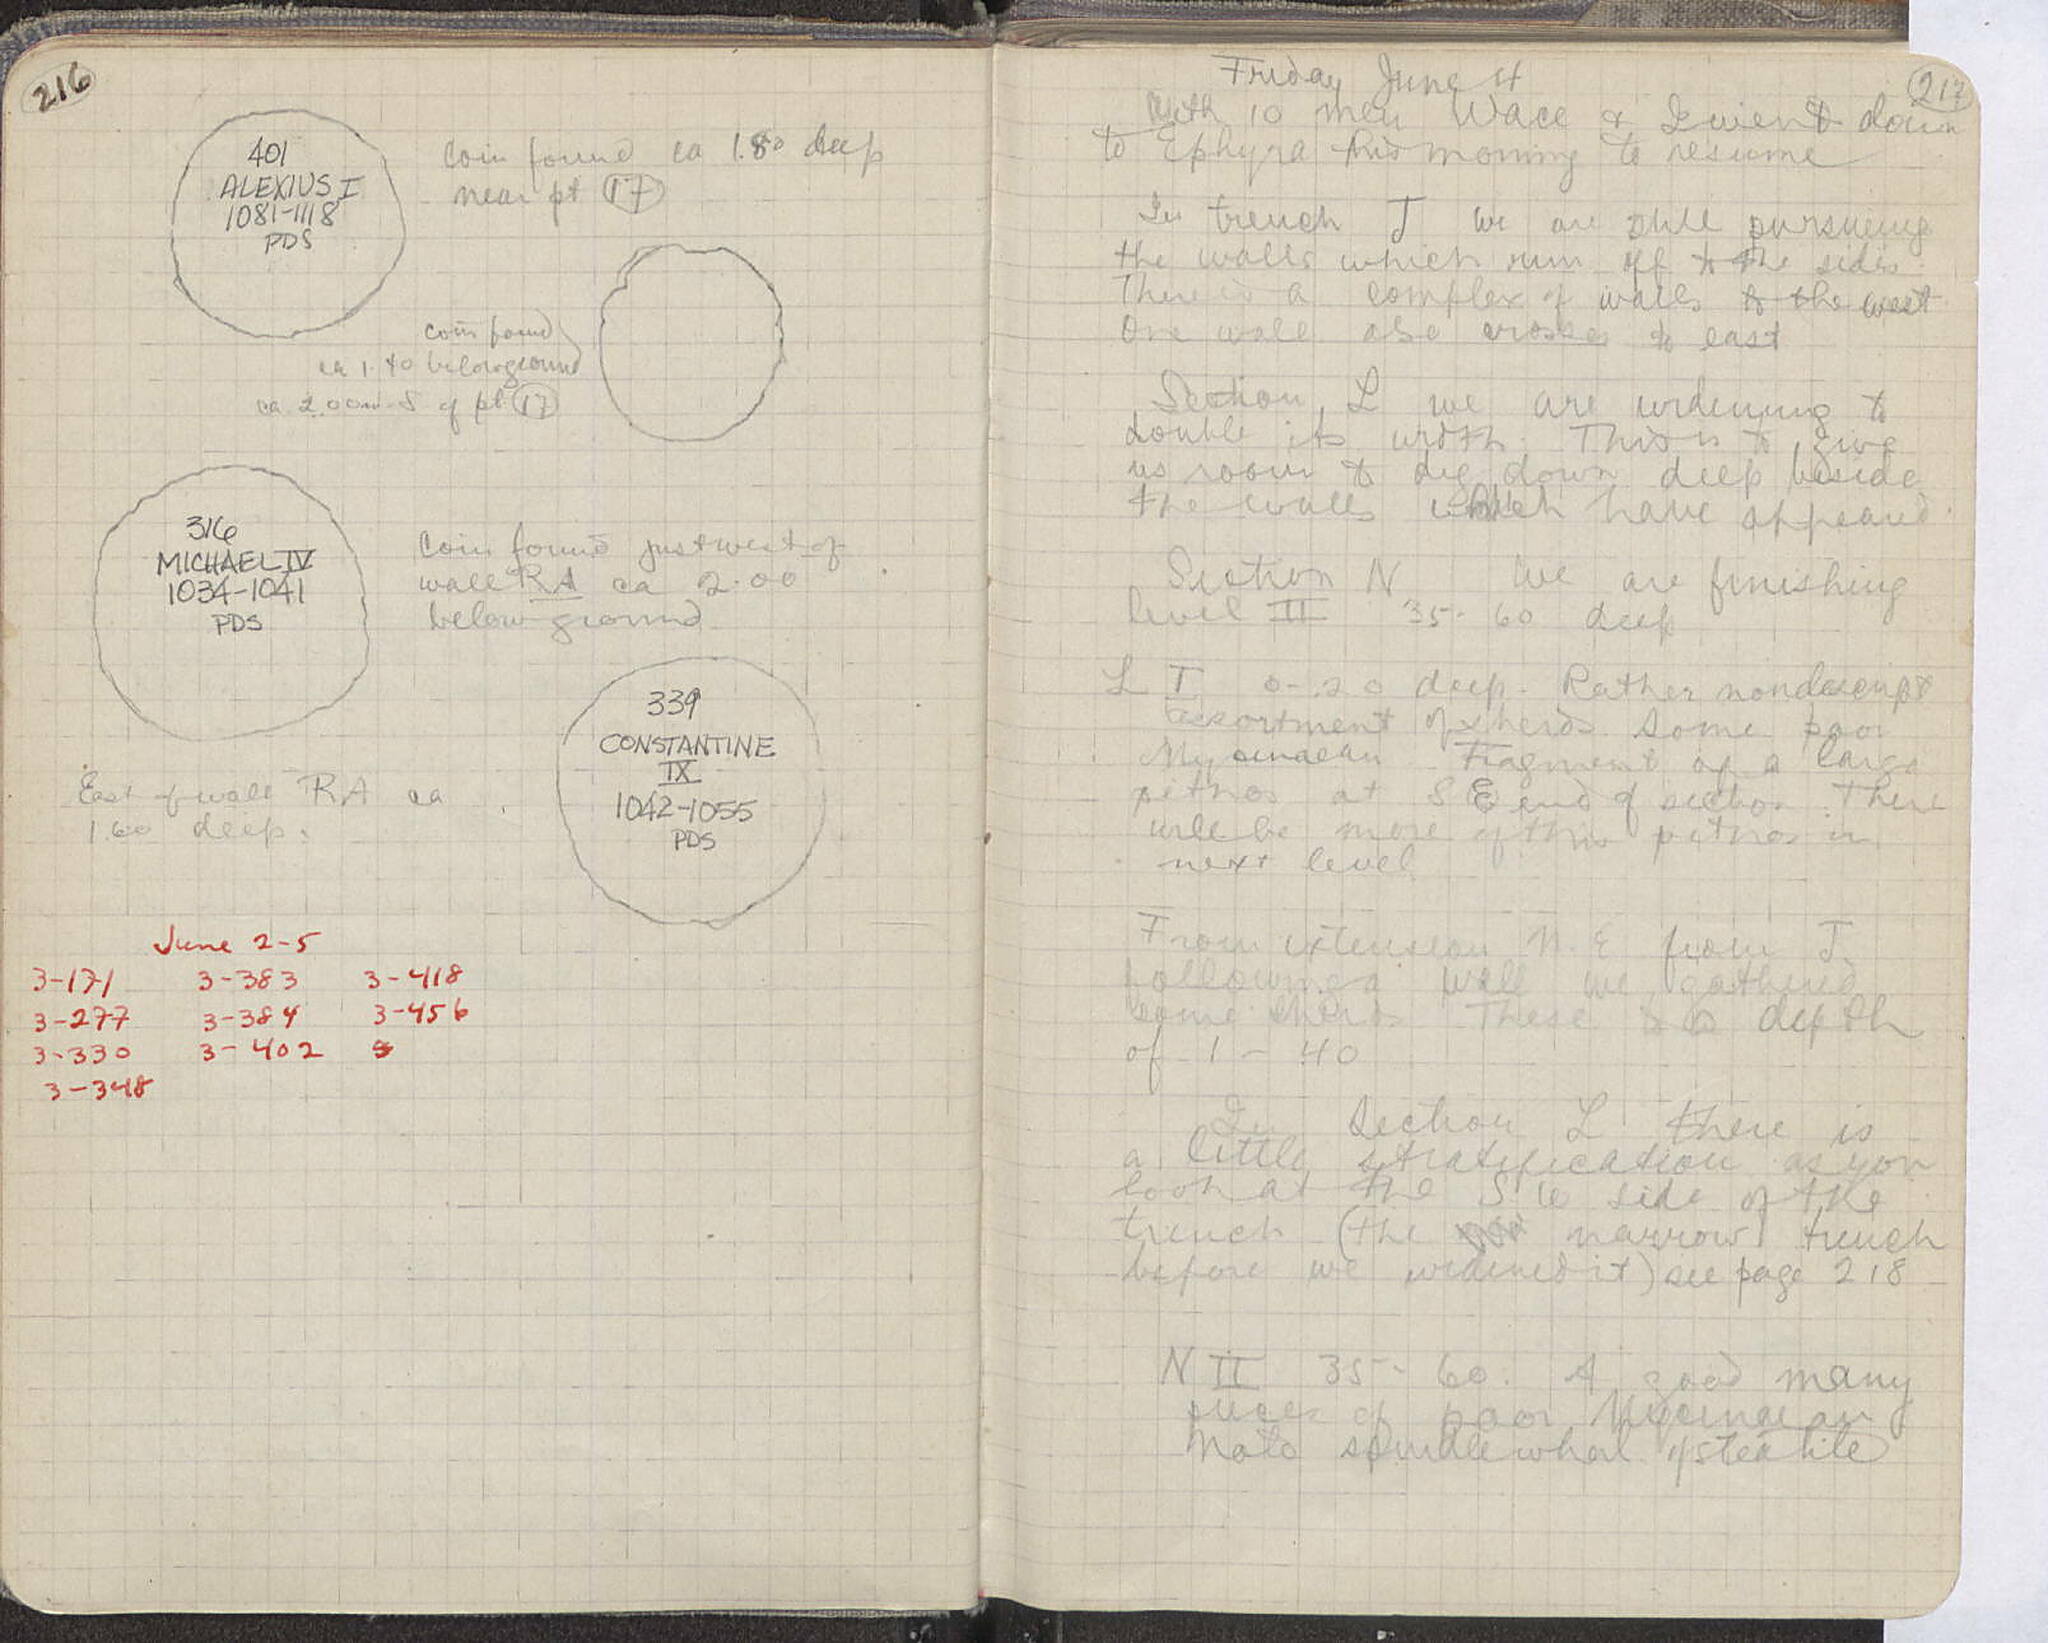 216
401
ALEXIUS I
1081-1118
PDS
Coin found ca 1.80 deep
near pt 17
coin found
ca 1.40 below ground
ca 2.00m S of pt 17
316
MICHAEL IV
1034-1041
PDS
Coin found just west of
wall RA ca 2.00
below ground
339
CONSTANTINE
IX
1042-1055
PDS
East of wall RA ca
1.60 deep.
June 2-5
3-171 3-383 3-418
3-277 3-384 3-456
3-330 3-402
3-348
217
Friday June 4
With 10 men Wace & I went down
to Ephyra this morning to resume
In trench J we are still pursueing
the walls which run off to the sides.
There is a complex of walls to the west
One wall also crosses to east
Section L we are widening to
double its width. This is to give
us room to dig down deep beside
the walls which have appeared.
Section N We are finishing
level II 35-60 deep
L I 0-.20 deep. Rather nondescript
assortment of sherds. Some poor
Mycenaean Fragment of a large
pithos at SE end of section. There
will be more of this pithos in
next level
From extension N.E from J
following wall we gathered
some sherds These to a depth
of 1-40
In Section L there is
a little stratification as you
look at the S.W side of the
trench (the narrow trench
before we widened it) see page 218
N II 35-60. A good many
pieces of poor Mycenaean
Note spindle whorl of steatite